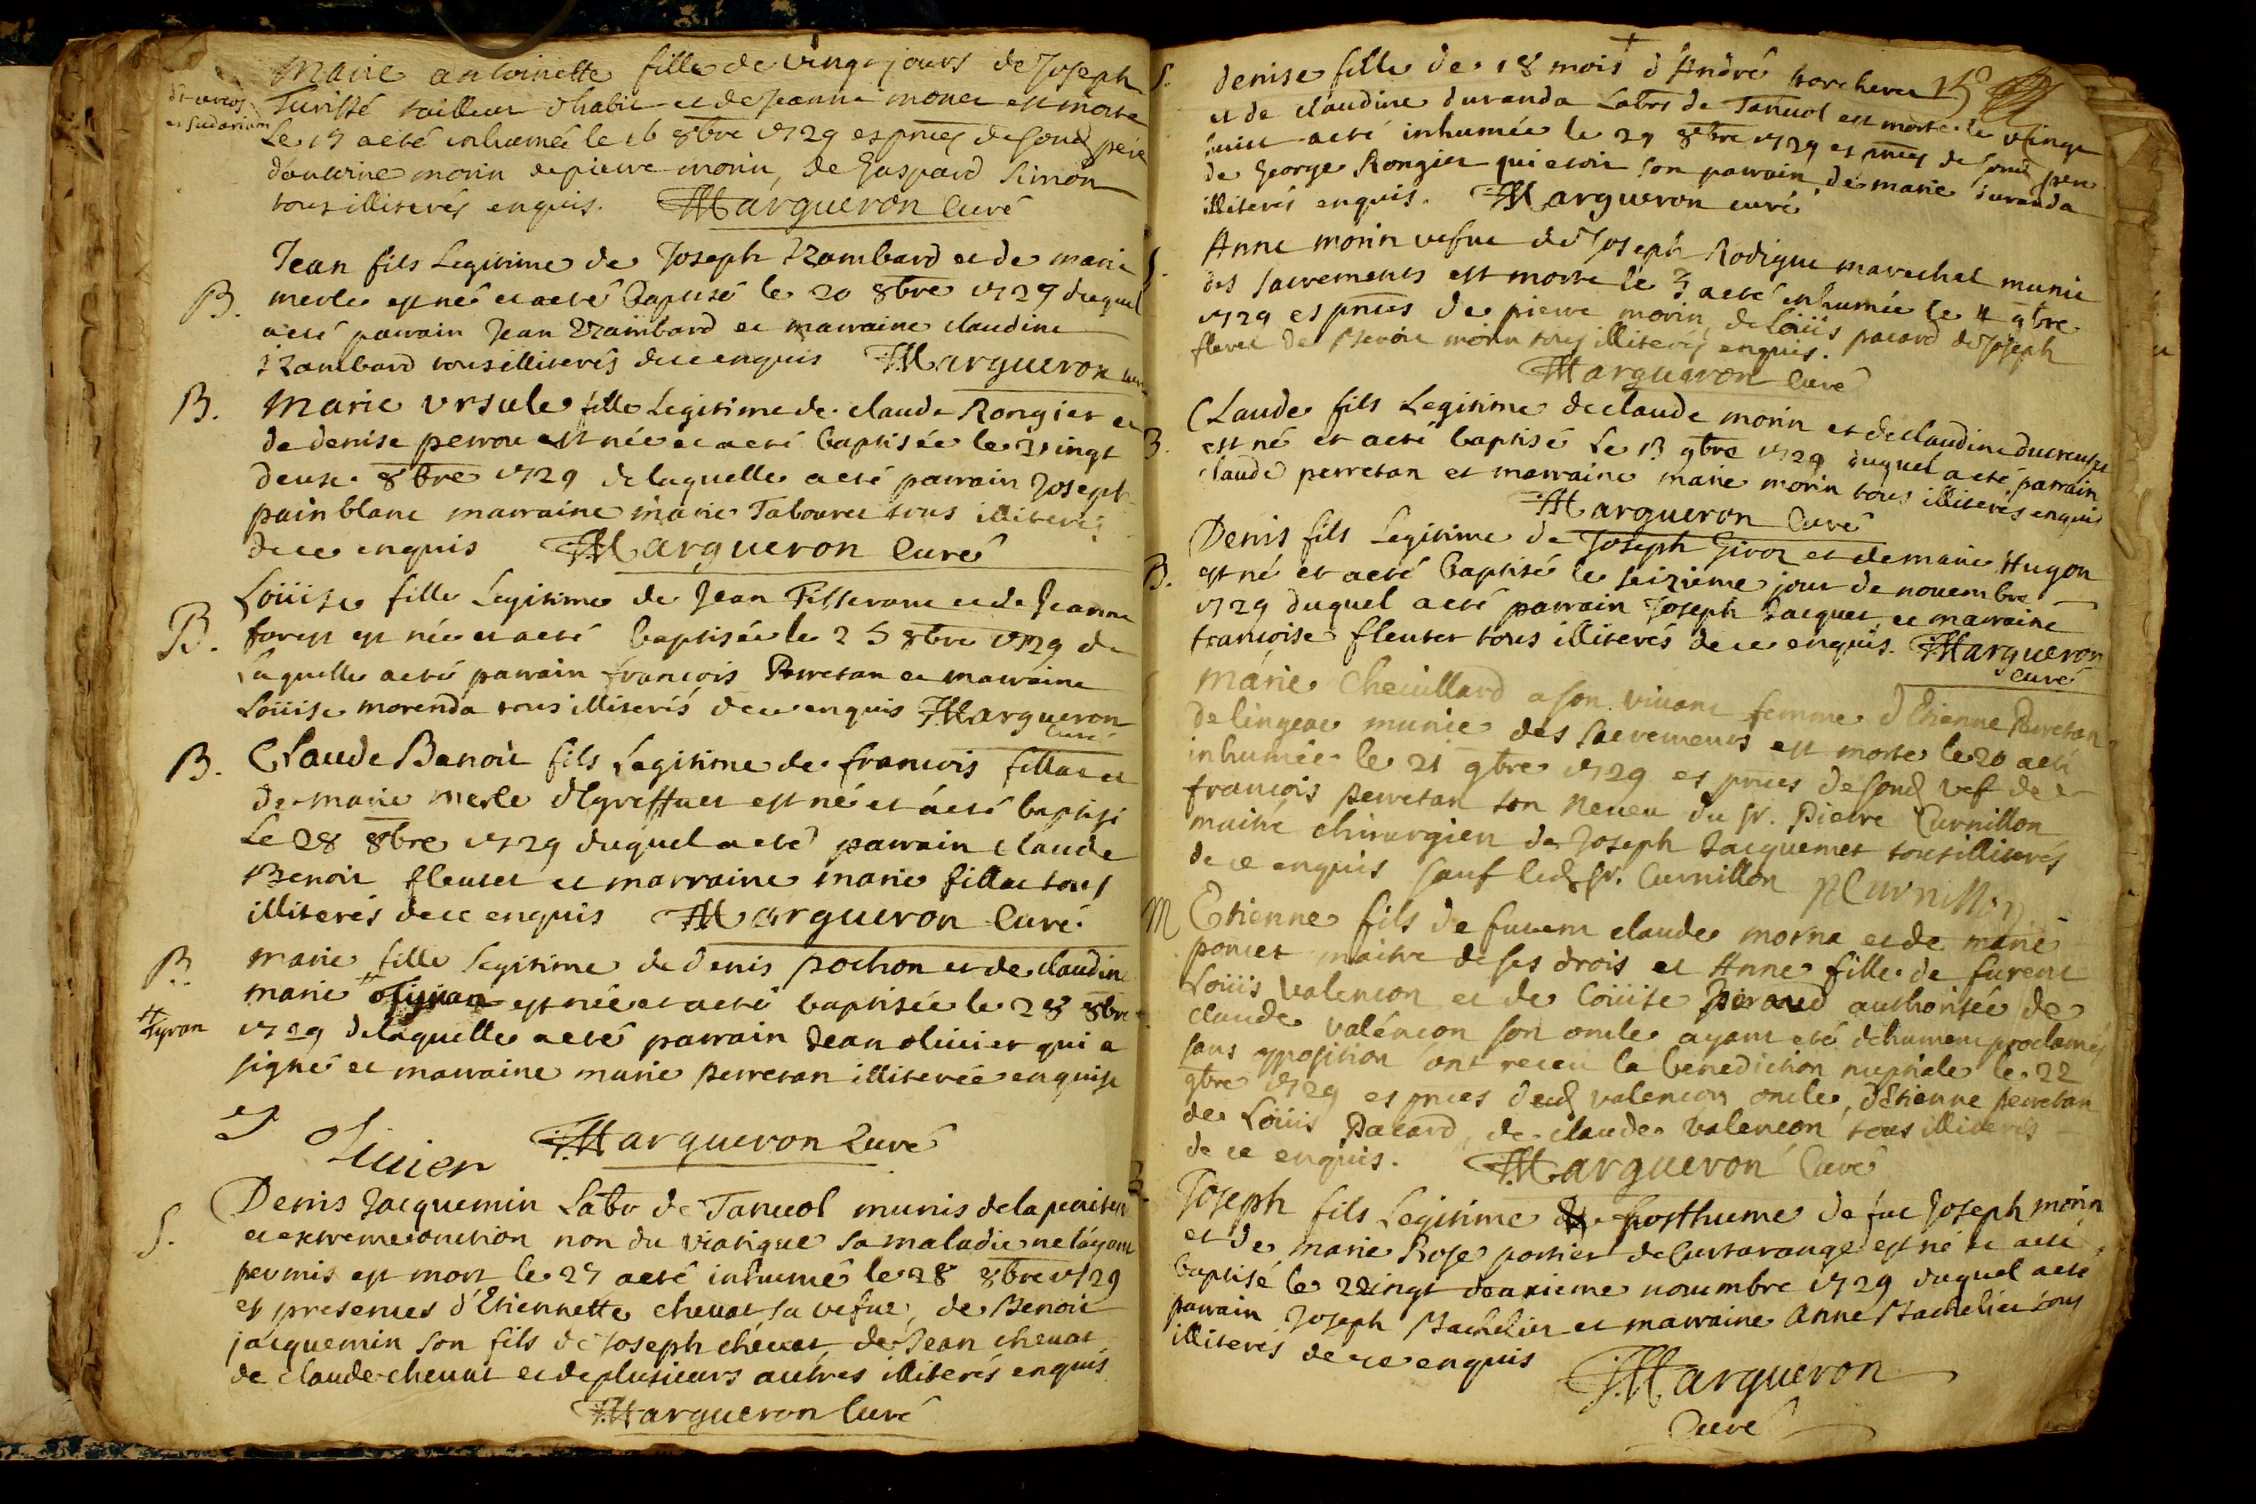 Marie antoinette fille de vingt jours de Joseph
tailleur d'habit et de Jeanne monet est morte
Le 15 a eté inhumée le 16 8bre 1729 es pnces de son père
morin de pierre morin, de Gaspard Simon
tous illiterés enquis. Margueron Curé
B.
Jean fils Legitime de Joseph Rambard et de marie
merle est né et a eté baptisé le 20 8bre 1729 duquel
a eté parrain Jean et marraine claudine
tous illiterés de ce enquis Margueron
B.
Marie Ursule fille Legitime de claude Rongier et
de denise perrou est née et a eté baptisée le vingt
deux 8bre 1729 de laquelle a eté parrain Joseph
painblanc marraine marie Tabouret tous illiterés
de ce enquis Margueron Curé
B.
Loüise fille Legitime de Jean et de Jeanne
forest est née et a eté baptisée le 25 8bre 1729 de
laquelle a eté parrain françois Perretan et marraine
Loüise morenda tous illiterés de ce enquis Margueron
curé
B.
Claude Benoit fils Legitime de françois fillat et
de marie merle est né et a eté baptisé
Le 28 8bre 1729 duquel a eté parrain claude
Benoit fleuret et marraine marie fillat tous
illiterés de ce enquis Margueron Curé
B.
marie fille legitime de denis pochon et de claudine
marie # est née et a eté baptisée le 28 8bre
# Tyran
1729 de laquelle a eté parrain Jean olivier qui a
signé et marraine marie perretan illiterée enquise
Olivier Margueron Curé
S.
Denis Jacquemin Labr de Tanuol munis de la penitence
et extreme onction non du viatique sa maladie ne l'ayant
permis est mort le 27 a eté inhumé le 28 8bre 1729
es presences d'Etiennette chevat sa vefue, de Benoit
jacquemin son fils de Joseph chevat, de Jean chevat
de claude chevat et de plusieurs autres illiterés enquis
Margueron Curé
S.
denise fille de 18 mois d'André
et de claudine duranda Labrs de Tanuol est morte le vingt
huict a eté inhumée le 29 8bre 1729 es pnces de sond pere
de George Rongier qui etoit son parrain, de marie duranda
illiterés enquis. Margueron curé
S.
Anne morin vefue de Joseph Rodigue marechal munie
des sacrements est morte le 3 a eté inhumée le 4 9bre
1729 es pnces de pierre morin, de Loüis pacard de Joseph
fleuret de Benoit morin tous illiterés enquis.
Margueron Curé
B.
Claude fils Legitime de claude morin et de claudine ducreuset
est né et a eté baptisé Le 13 9bre 1729 duquel a eté parrain
claude perretan et marraine marie morin tous illiterés enquis
Margueron Curé
B.
Denis fils Legitime de Joseph Girox et de marie Hugon
est né et a eté baptisé le seizième jour de novembre
1729 duquel a eté parrain Joseph Jacquet et marraine
françoise fleuret tous illiterés de ce enquis. Margueron
curé
Marie Chevillard a son vivant femme d'Etienne Perretan
de lingeat munie des sacrements est morte le 20 a eté
inhumée le 21 9bre 1729 es pnces de sond vef de
françois perretan son neveu du sr. Pierre Curnillon
maitre chirurgien de Joseph Jacquemet tous illiterés
de ce enquis sauf led sr. Curnillon PCurnillon
M
Etienne fils de furent claude morna et de marie
poncet maitre de ses drois et Anne fille de furent
Loüis valencon et de Loüise Peraud authorisée de
claude valencon son oncle ayant eté dehument proclamés
sans opposition ont receu la benediction nuptiale le 22
9bre 1729 es pnces dud valencon oncle, d'Etienne perretan
de Loüis Pacard, de claude valencon tous illiterés
de ce enquis. Margueron Curé
B.
Joseph fils Legitime posthume de fut Joseph morin
et de marie Rose portier de est né et a eté
baptisé le vingt deuxieme novembre 1729 duquel a eté
parrain Joseph Bachelier et marraine Anne Bachelier tous
illiterés de ce enquis
Margueron
Curé